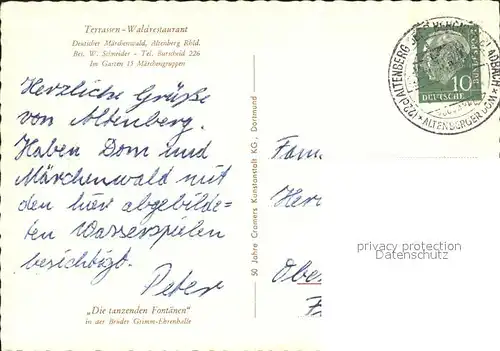 Terrassen-Waldrestaurant
Deutscher Märchenwald, Altenberg Rhld.
Bes. W. Schneider - Tel. Burscheid 226
Im Garten 15 Märchengruppen
Herzliche Grüße
von Altenberg.
Haben Dom und
Märchenwald mit
den hier abgebilde=
ten Wasserspielen
besichtigt.
Peter
„Die tanzenden Fontänen"
in der Brüder Grimm-Ehrenhalle
50 Jahre Cramers Kunstanstalt KG., Dortmund
10
DEUTSCHE
(22c) ALTENBERG
ALTENBERGER DOM
Fam
Her
Obe
privacy protection
Datenschutz